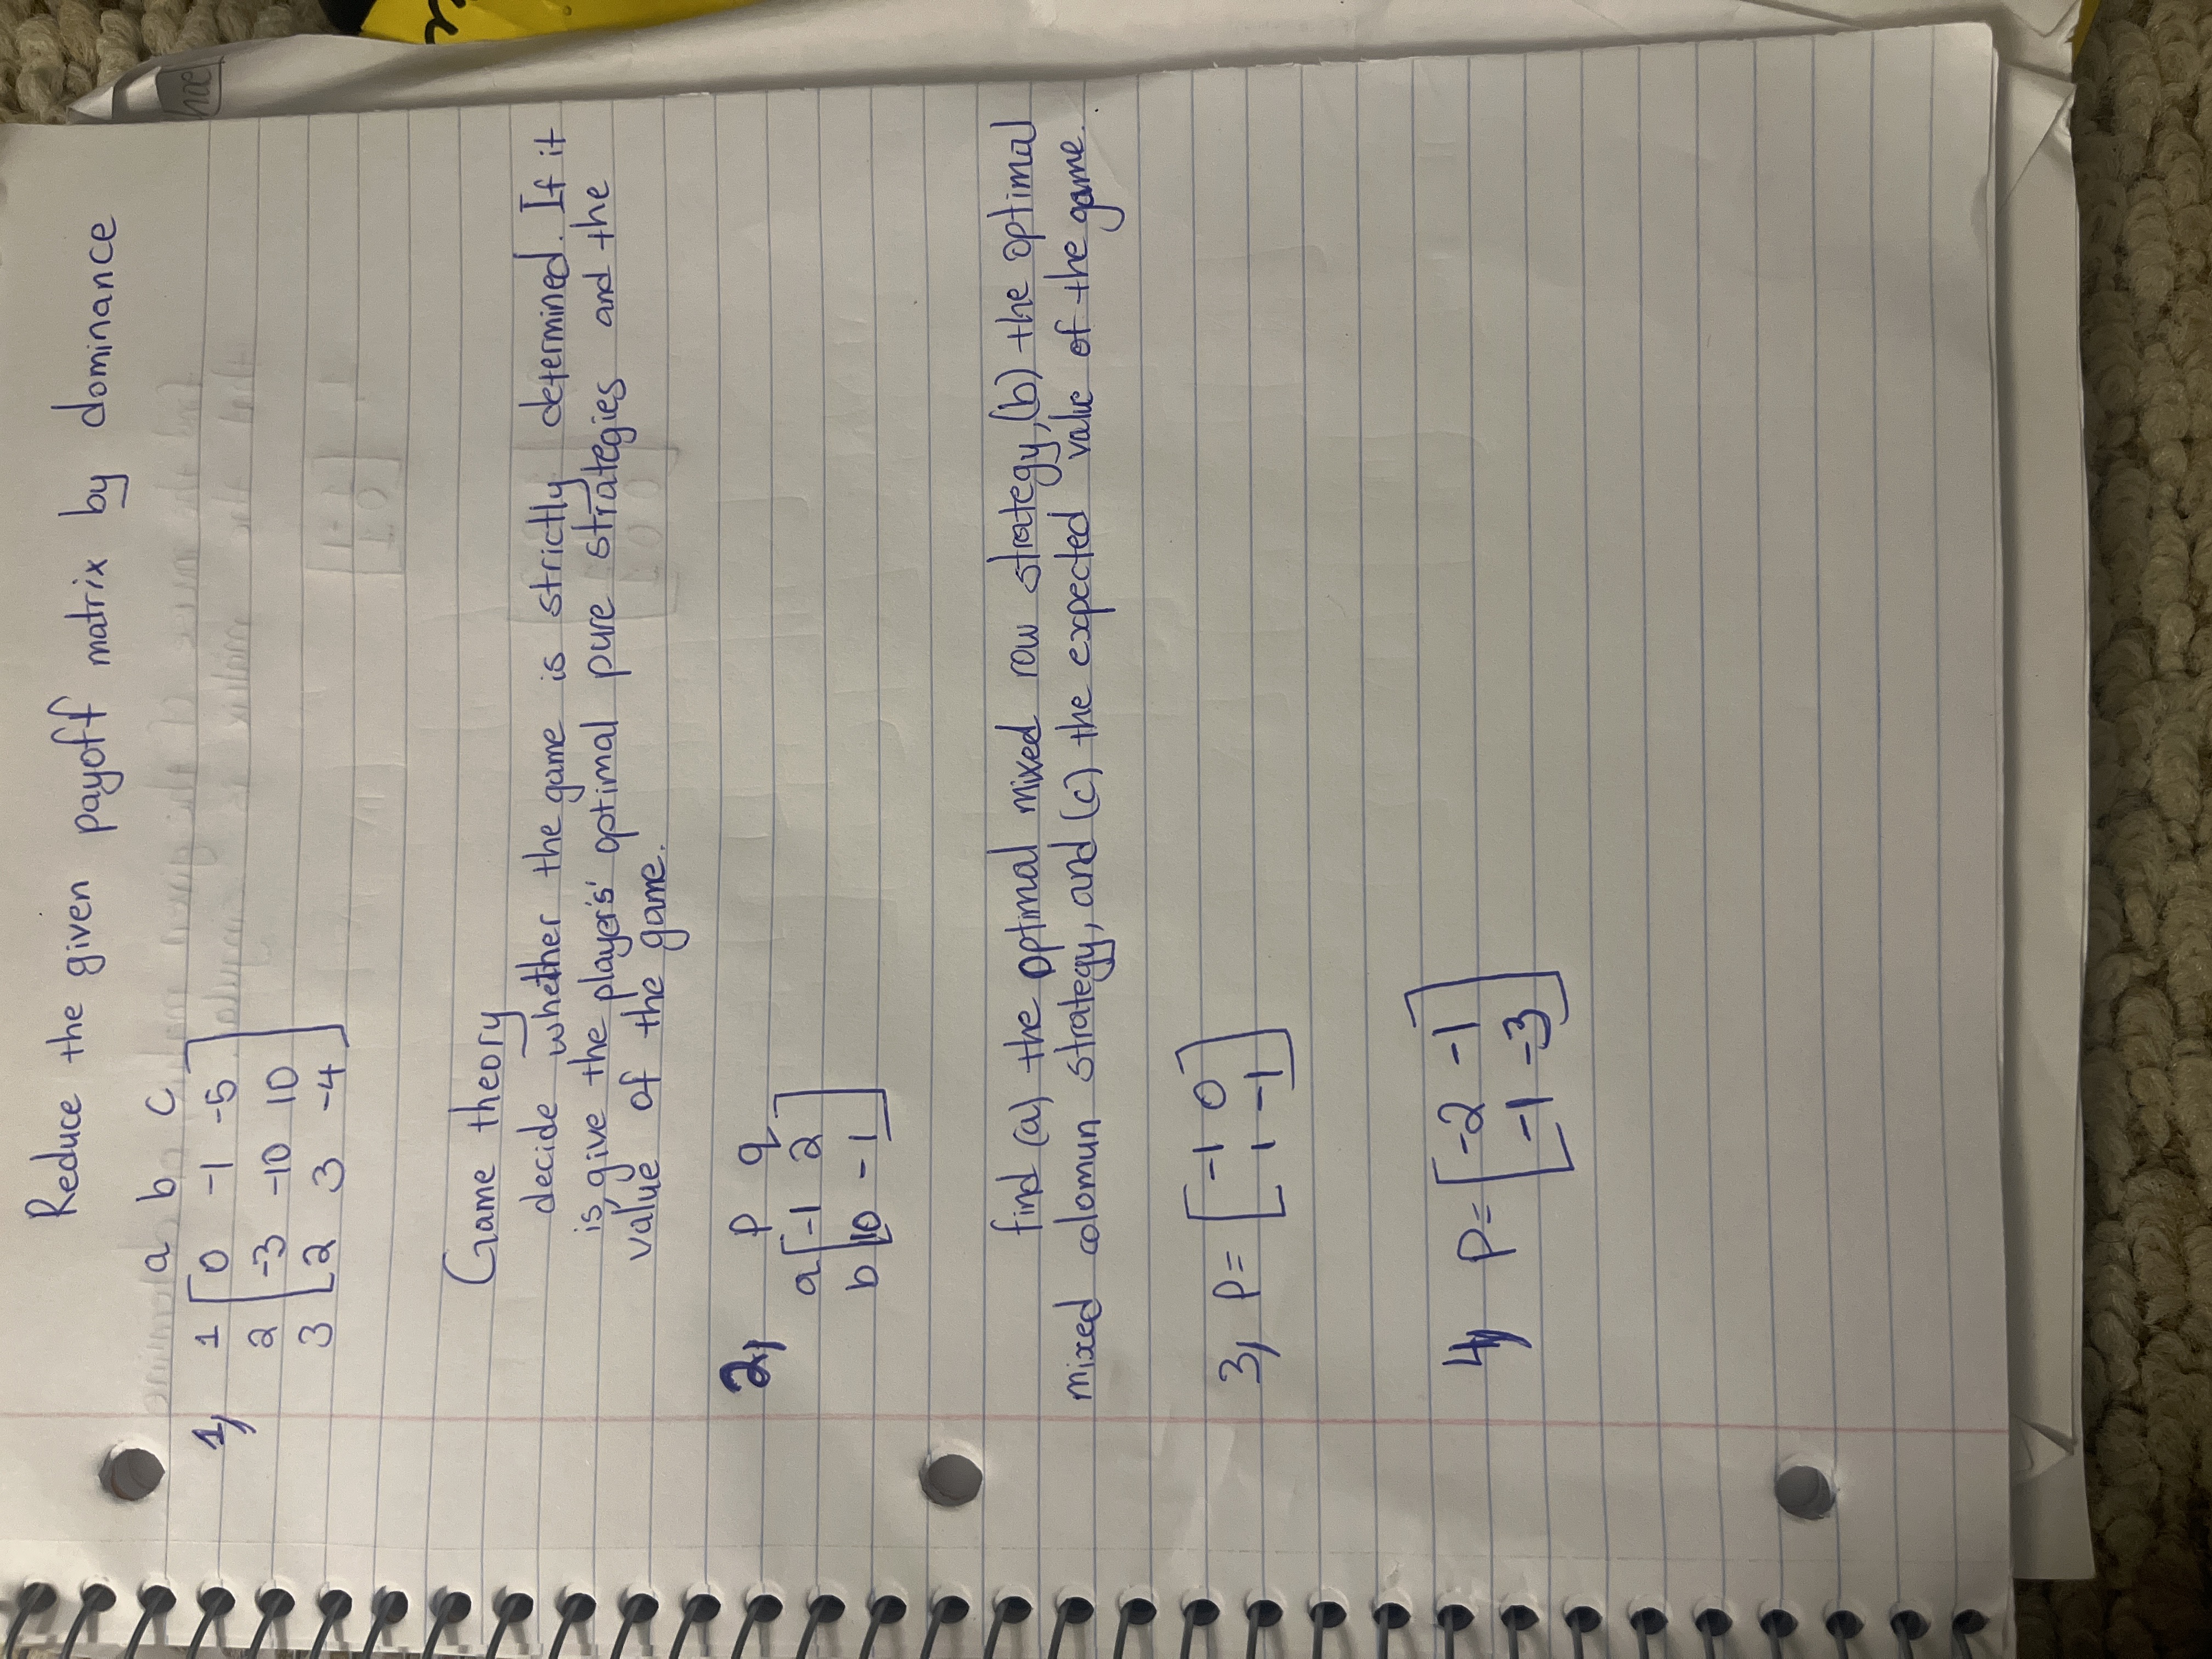 Reduce the given payoff matrix by dominance
a b c
1, 1 [ 0 -1 -5 ]
2 [ -3 -10 10 ]
3 [ 2 3 -4 ]
Game theory
decide whether the game is strictly determined. If it
is, give the player's' optimal pure strategies and the
value of the game.
2, P q
a [ -1 2 ]
b [ 10 -1 ]
find (a) the optimal mixed row strategy, (b) the optimal
mixed colomun strategy, and (c) the expected value of the game.
3, P= [ -1 0 ]
[ 1 -1 ]
4, P= [ -2 -1 ]
[ -1 -3 ]